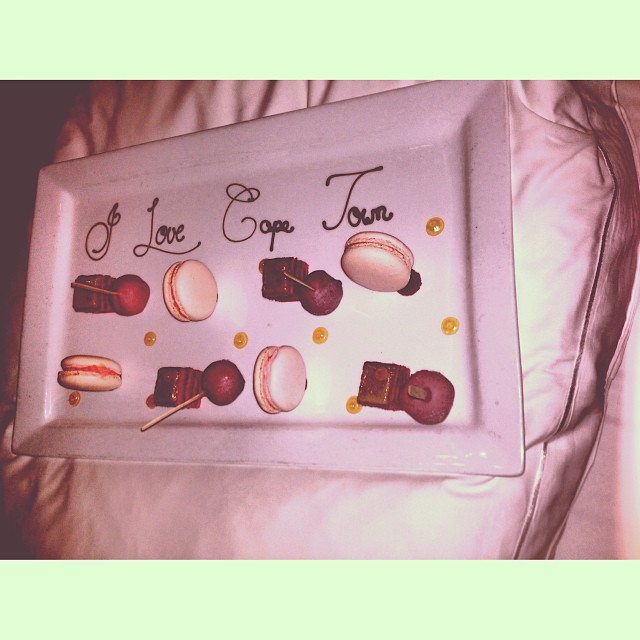 I Love Cape Town